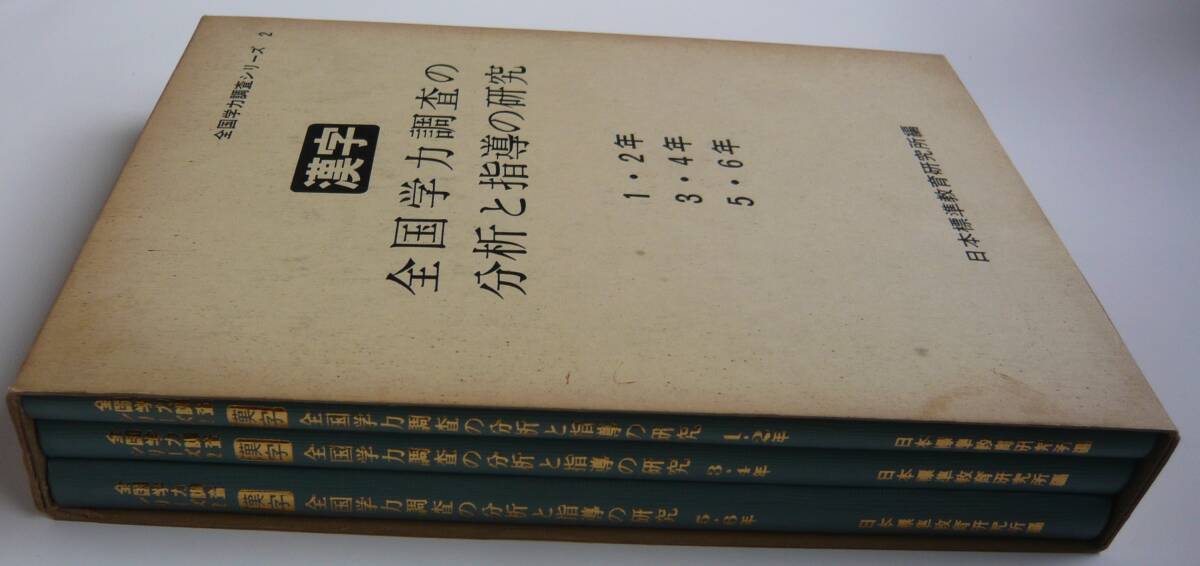 全国学力調査シリーズ 2
漢字
全国学力調査の
分析と指導の研究
1・2年
3・4年
5・6年
日本標準教育研究所編
全国学力調査
シリーズ 2
漢字
全国学力調査の分析と指導の研究 1・2年
日本標準教育研究所編
全国学力調査
シリーズ 2
漢字
全国学力調査の分析と指導の研究 3・4年
日本標準教育研究所編
全国学力調査
シリーズ 2
漢字
全国学力調査の分析と指導の研究 5・6年
日本標準教育研究所編